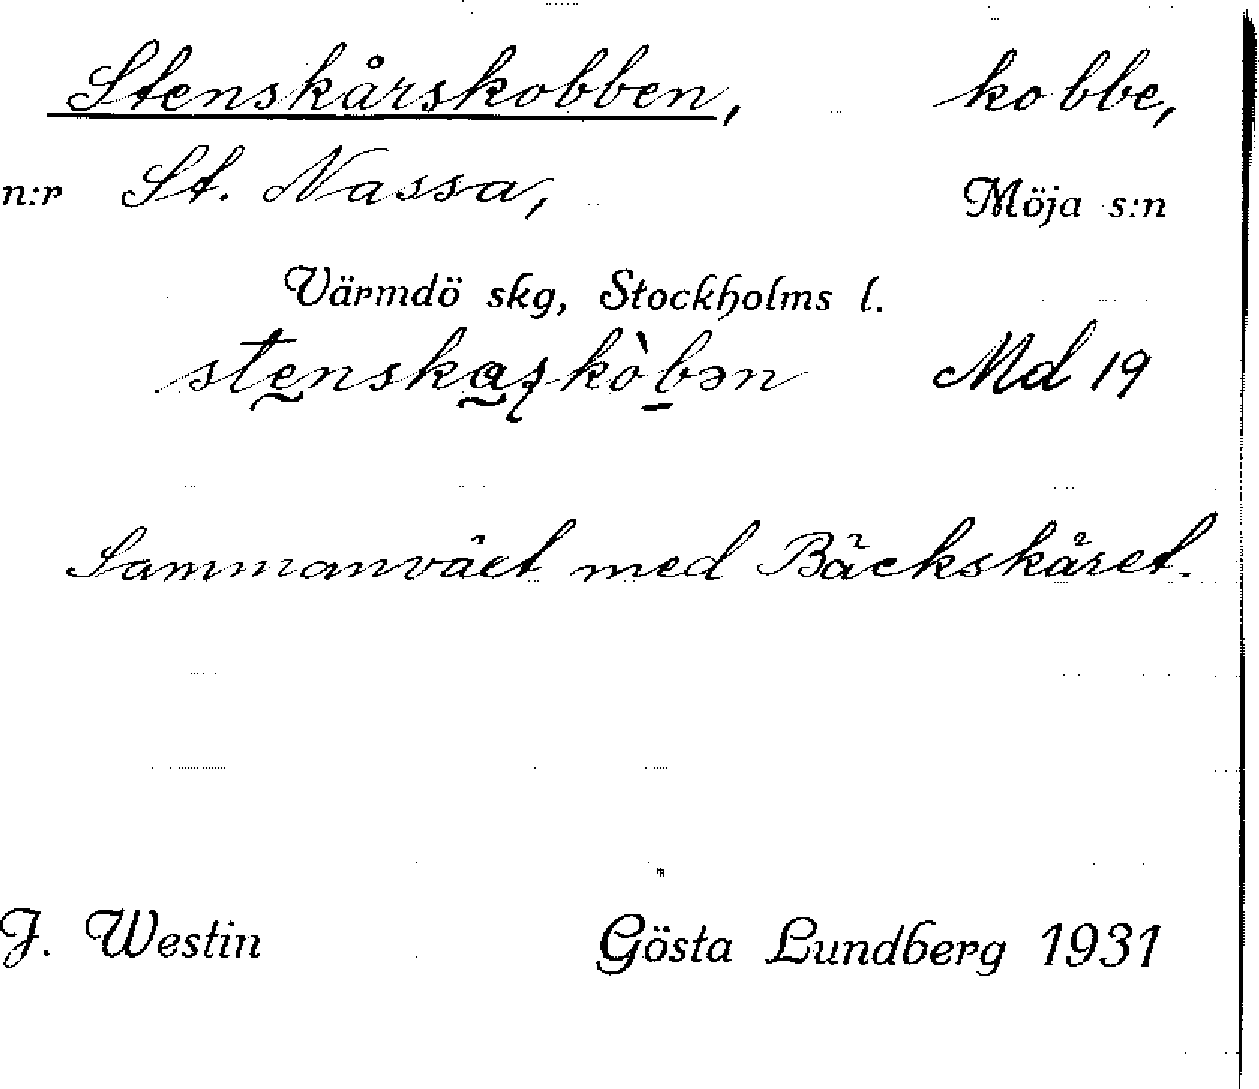 Stenskårskobben, kobbe,
n:r St. Nassa, Möja s:n
Värmdö skg, Stockholms l.
stḛnska̰ʂkòb̠ən Md 19
Sammanväet med Bäckskäret.
J. Westin Gösta Lundberg 1931